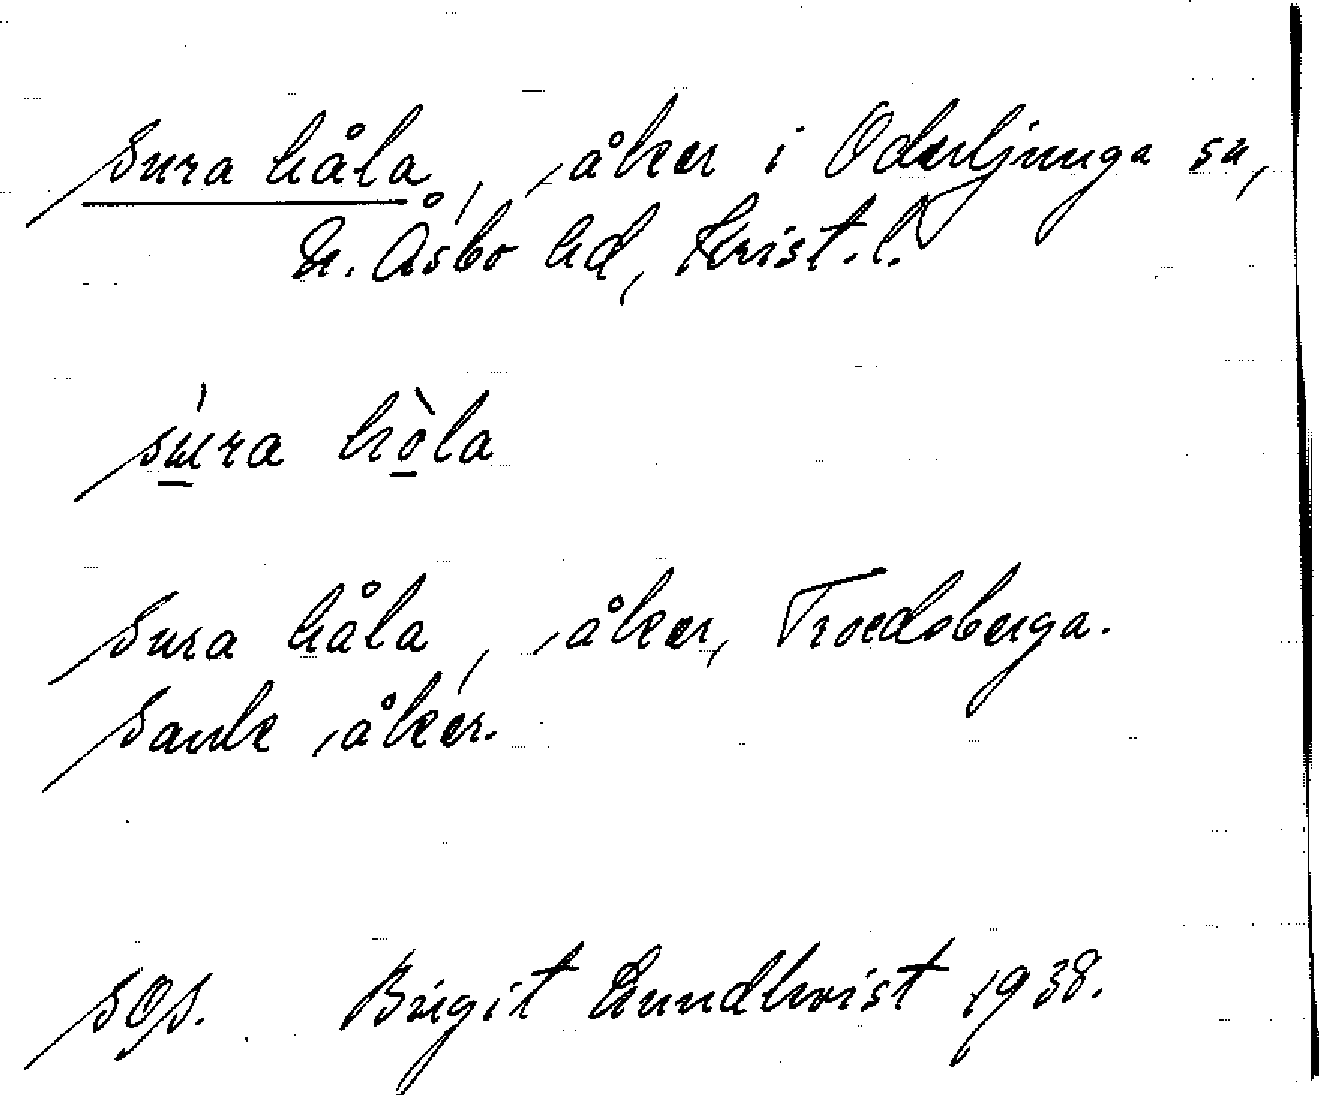 Sura håla, åker i Oderljunga sn,
N. Åsbo hd, Krist. l.
su̱ra ho̱la
Sura håla, åker, Troedsberga.
Sank åker.
SOJ. Birgit Lundkvist 1938.